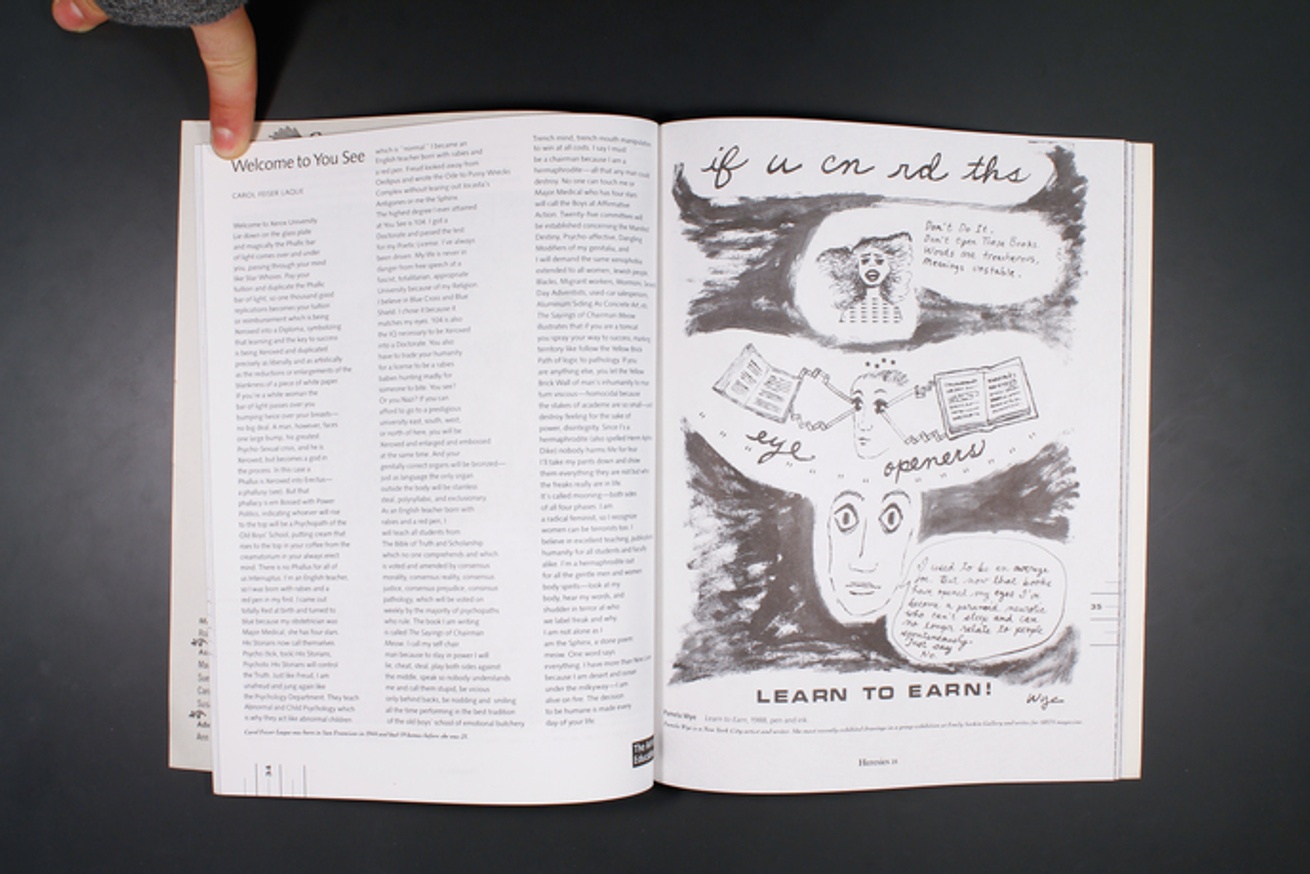 Welcome to You See
CAROL FEISER LAQUE
Welcome to Xerox University
Lie down on the glass plate
and magically the Phallic bar
of light comes over and under
you, passing through your mind
like Star Whores. Pay your
tuition and duplicate the Phallic
bar of light, so one thousand good
replications becomes your tuition
or reimbursement which is being
Xeroxed into a Diploma, symbolizing
that learning and the key to success
is being Xeroxed and duplicated
precisely as liberally and as artistically
as the reductions or enlargements of the
blankness of a piece of white paper
If you're a white woman the
bar of light passes over you
bumping twice over your breasts—
no big deal. A man, however, faces
one large bump, his greatest
Psycho-Sexual crisis, and he is
Xeroxed, but becomes a god in
the process. In this case a
Phallus is Xeroxed into Erectus—
a phallusy (see). But that
phallacy is em Bossed with Power
Politics, indicating whoever will rise
to the top will be a Psychopath of the
Old Boys' School, putting cream that
rises to the top in your coffee from the
creamatorium in your always erect
mind. There is no Phallus for all of
us Interruptus. I'm an English teacher,
so I was born with rabies and a
red pen in my first. I came out
totally Red at birth and turned to
blue because my obstetrician was
Major Medical, she has four stars.
His Storians now call themselves
Psycho (tick, tock) His Storians,
Psychotic His Storians will control
the Truth. Just like Freud, I am
unafreud and jung again like
the Psychology Department. They teach
Abnormal and Child Psychology which
is why they act like abnormal children
which is "normal" I became an
English teacher Born with rabies and
a red pen. Freud looked away from
Oedipus and wrote the Ode to Pussy Wrecks
Complex without leaving out Jocasta's
Antigones or me the Sphinx.
The highest degree I ever attained
at You See is '104. I got a
Doctorate and passed the test
for my Poetic License. I've always
been driven. My life is never in
danger from free speech at a
fascist, totalitarian, appropriate
University because of my Religion
I believe in Blue Cross and Blue
Shield. I chose it because it
matches my eyes. '104 is also
the IQ necessary to be Xeroxed
into a Doctorate. You also
have to trade your humanity
for a license to be a rabies
babies hunting madly for
someone to bite. You see?
Or you Nazi? If you can
afford to go to a prestigious
university east, south, west,
or north of here, you will be
Xeroxed and enlarged and embossed
at the same time. And your
genitally correct organs will be bronzed—
just as language the only organ
outside the body will be stainless
steal, polysyllabic, and exclusionary.
As an English teacher born with
rabies and a red pen, I
will teach all students from
The Bible of Truth and Scholarship
which no one comprehends and which
is voted and amended by consensus
morality, consensus reality, consensus
justice, consensus prejudice, consensus
pathology, which will be voted on
weekly by the majority of psychopaths
who rule. The book I am writing
is called The Sayings of Chairman
Meow. I call my self chair
man because to stay in power I will
lie, cheat, steal, play both sides against
the middle, speak so nobody understands
me and call them stupid, be vicious
only behind backs, be nodding and smiling
all the time performing in the best tradition
of the old boys' school of emotional butchery
Trench mind, trench mouth manipulates
to win at all costs. I say I must
be a chairman because I am a
hermaphrodite—all that any man could
destroy. No one can touch me or
Major Medical who has four stars
will call the Boys at Affirmative
Action. Twenty-five committees will
be established concerning the Manifest
Destiny, Psycho-affective, Dangling
Modifiers of my genitalia, and
I will demand the same xenophobia
extended to all women, Jewish people,
Blacks, Migrant workers, Wormons, Seven
Day Adventists, used-car salesperson,
Alumiespin Siding As Concrete Art, etc.
The Sayings of Chairman Meow
illustrates that if you are a tomcat
you spray your way to success, marking
territory like follow the Yellow Brick
Path of logic to pathology. If you
are anything else, you let the Yellow
Brick Wall of man's inhumanity to man
turn viscous—homicidal because
the stakes of academe are so small—or
destroy feeling for the sake of
power, disintegrity. Since I'm a
hermaphrodite (also spelled Herm Aphro
Dike) nobody harms Me for fear
I'll take my pants down and show
them everything they are not but who
the freaks really are in life.
It's called mooning—both sides
of all four phases. I am
a radical feminist, so I recognize
women can be terrorists too. I
believe in excellent teaching, publication
humanity for all students and faculty
alike. I'm a hermaphrodite out
for all the gentle men and women
body spirits—look at my
body, hear my words, and
shudder in terror at who
we label freak and why.
I am not alone as I
am the Sphinx, a stone poem,
meow. One word says
everything. I have more than Nine Lives
because I am desert and ocean
under the milkyway—I am
alive on fire. The decision
to be humane is made every
day of your life.
Carol Feiser Laque was born in San Francisco in 1944 and had 19 homes before she was 21.
34
The Art
Educa
if u cn rd ths
Don't Do It.
Don't Open Those Books.
Words are treacherous,
Meanings unstable.
eye
openers
I used to be an average
joe. But now that books
have opened my eyes I'm
become a paranoid neurotic
who can't sleep and can
no longer relate to people
spontaneously.
Just say
No.
LEARN TO EARN!
Wye
35
Pamela Wye Learn to Earn, 1988, pen and ink.
Pamela Wye is a New York City artist and writer. She most recently exhibited drawings in a group exhibition at Emily Sorkin Gallery and writes for ARTS magazine.
Heresies 25